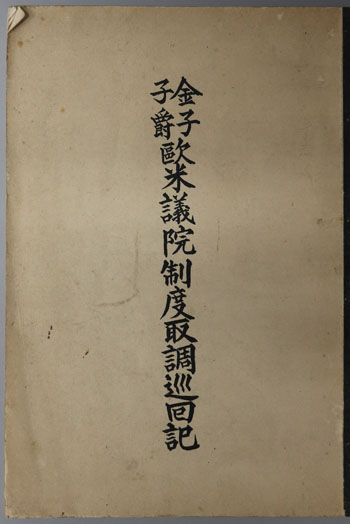 金子子爵歐米議院制度取調巡回記